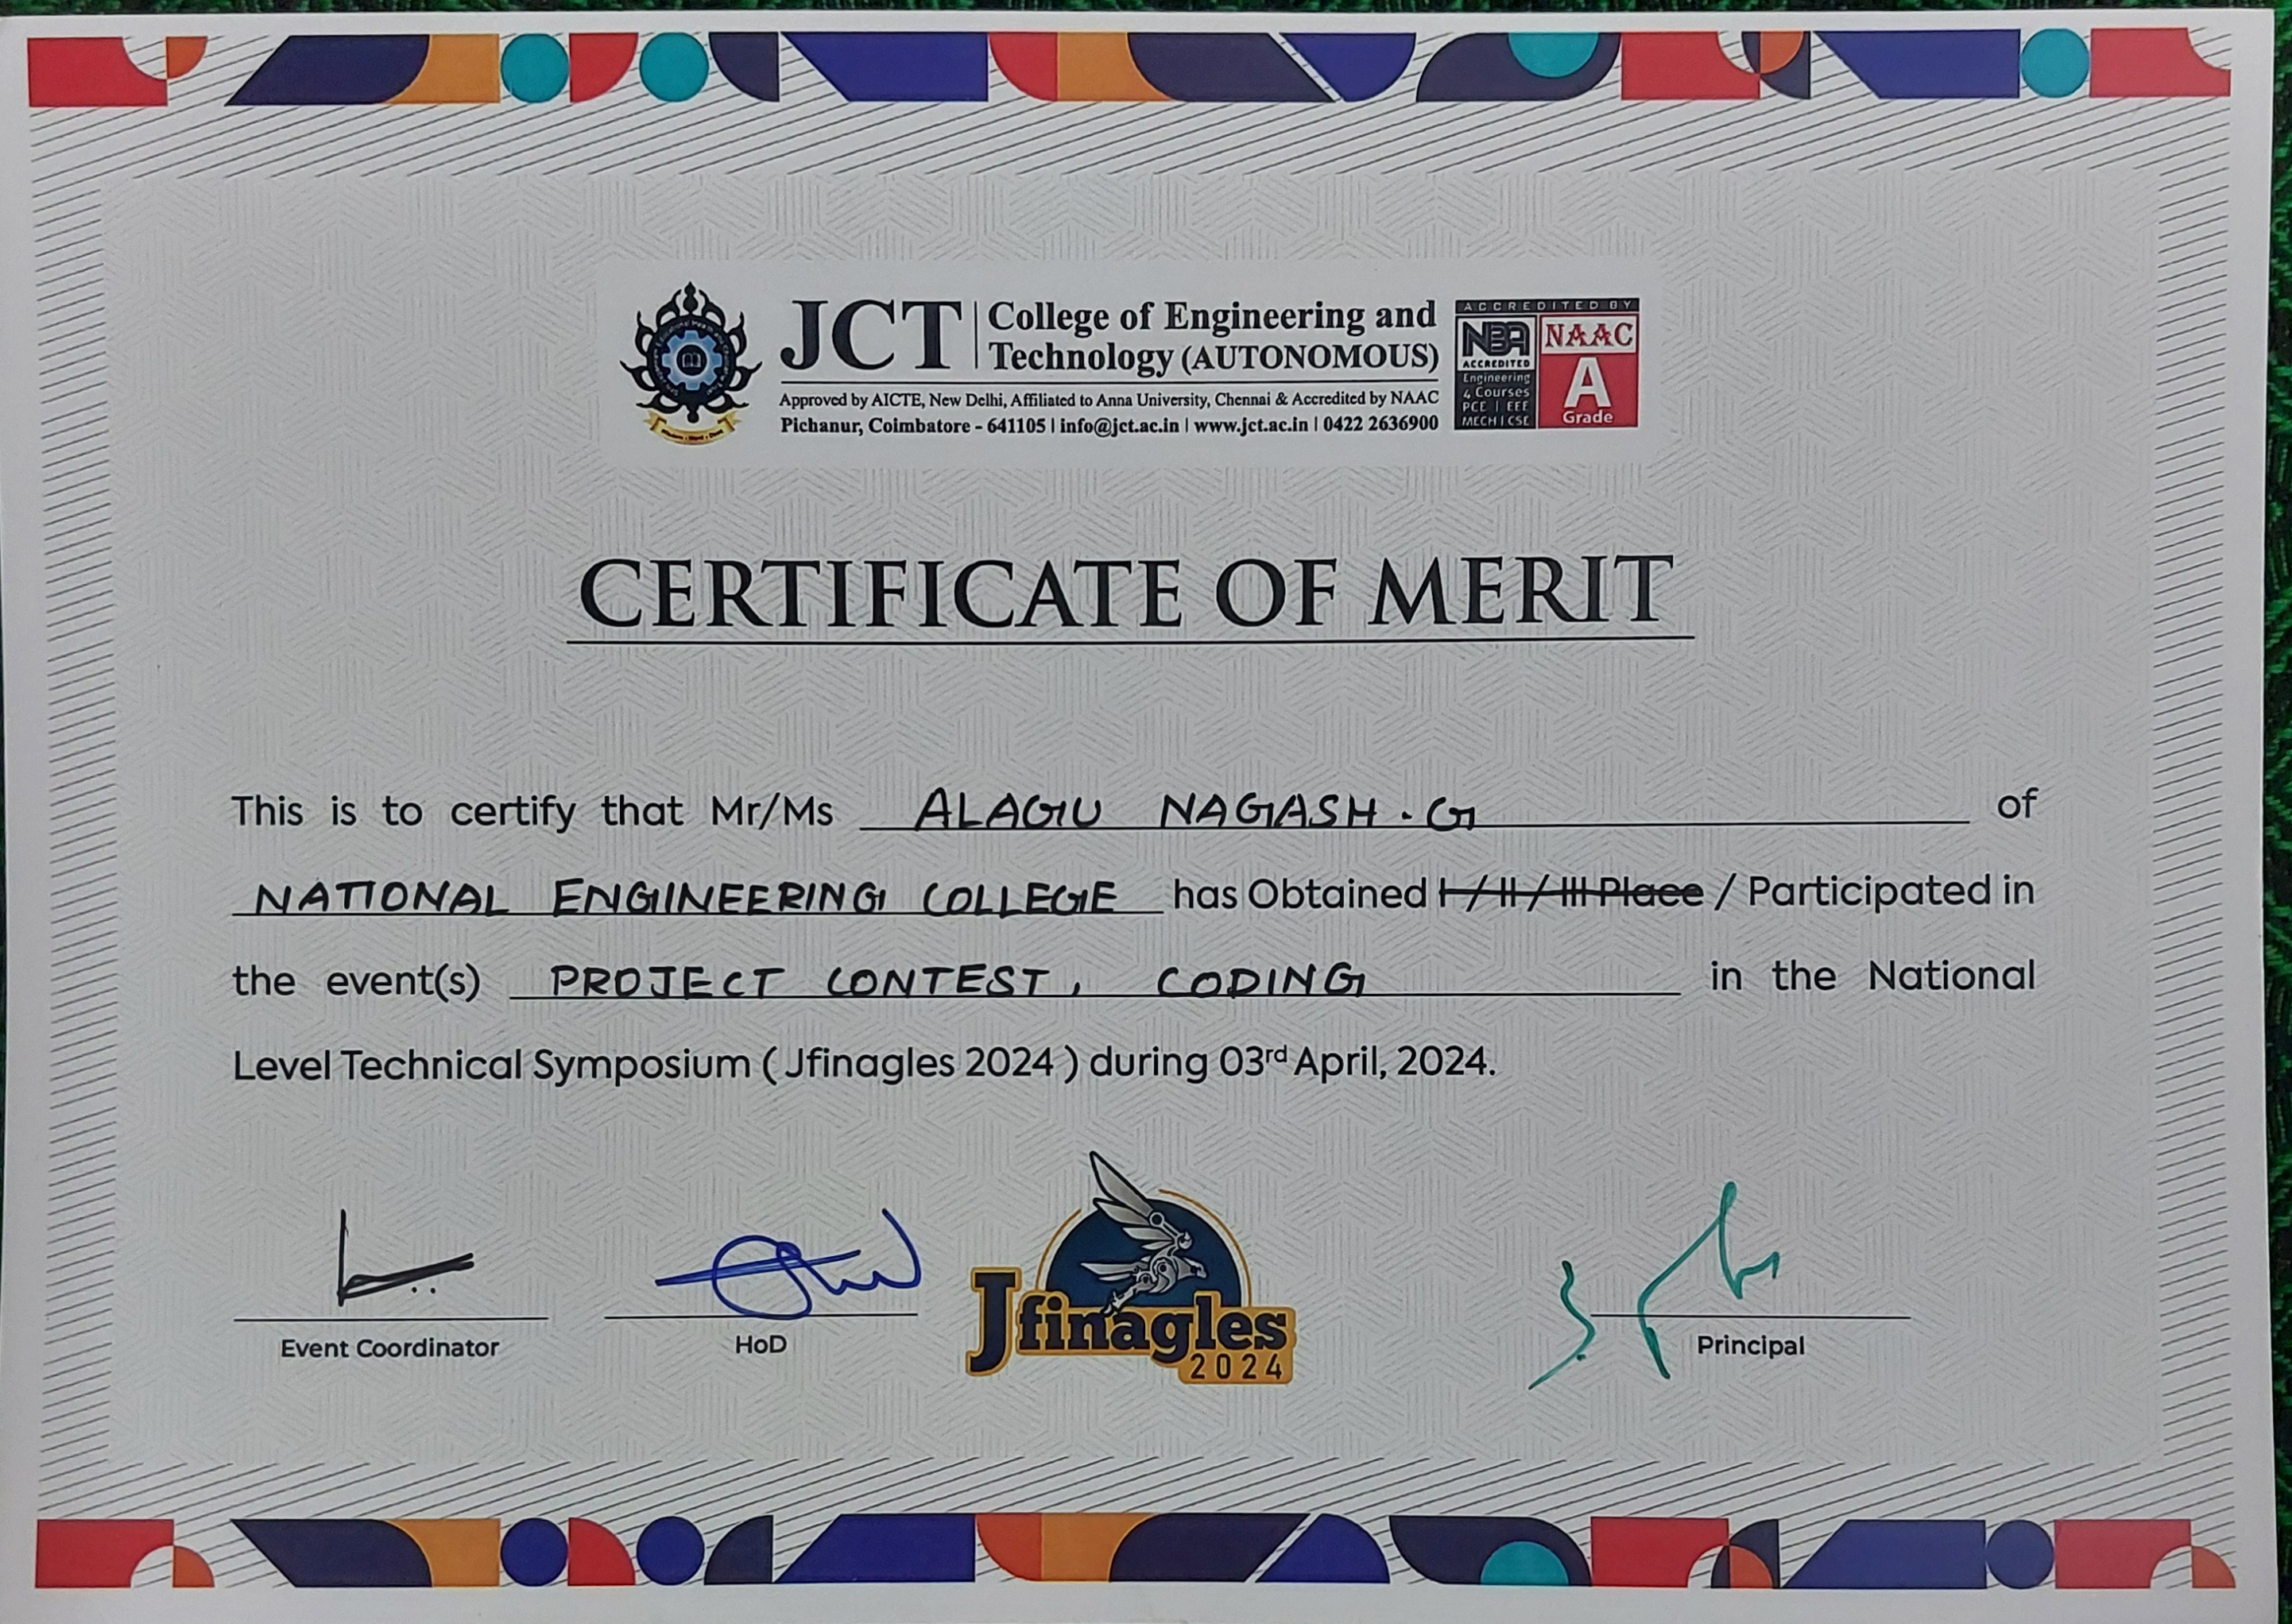 JCT College of Engineering and
Technology (AUTONOMOUS)
Approved by AICTE, New Delhi, Affiliated to Anna University, Chennai & Accredited by NAAC
Pichanur, Coimbatore - 641105 | info@jct.ac.in | www.jct.ac.in | 0422 2636900
ACCREDITED BY
NBA
ACCREDITED
Engineering
4 Courses
PCE | EEE
MECH | CSE
NAAC
A
Grade
CERTIFICATE OF MERIT
This is to certify that Mr/Ms ALAGU NAGASH.G of
NATIONAL ENGINEERING COLLEGE has Obtained I / II / III Place / Participated in
the event(s) PROJECT CONTEST, CODING in the National
Level Technical Symposium ( Jfinagles 2024 ) during 03rd April, 2024.
Event Coordinator
HoD
Jfinagles
2024
Principal